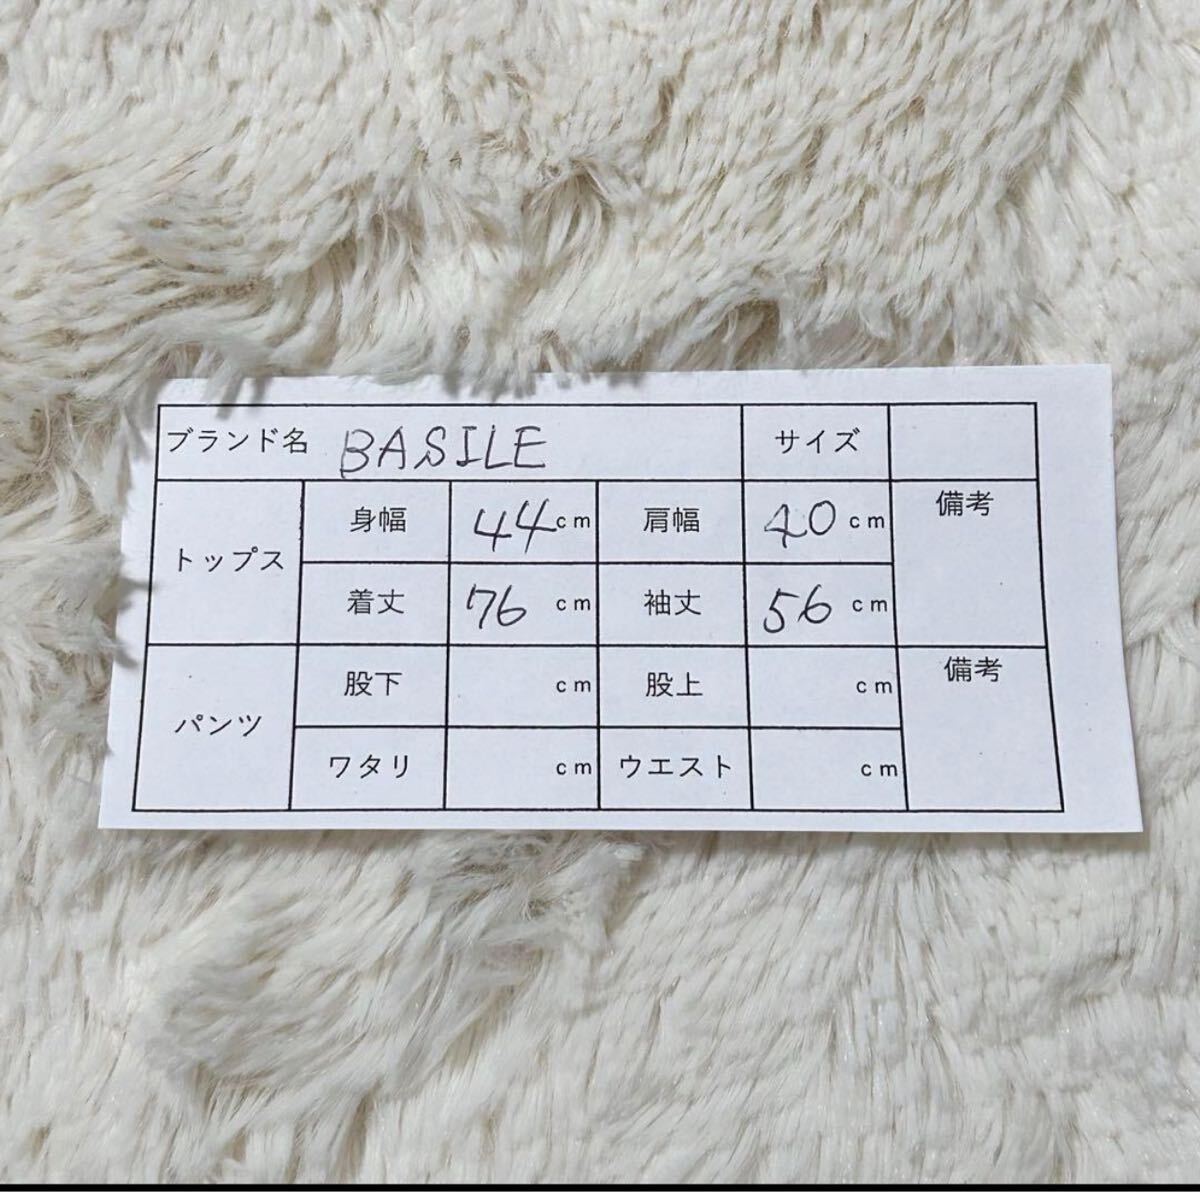 ブランド名 BASILE サイズ
トップス 身幅 44cm 肩幅 40cm 備考
着丈 76cm 袖丈 56cm
パンツ 股下 cm 股上 cm 備考
ワタリ cm ウエスト cm